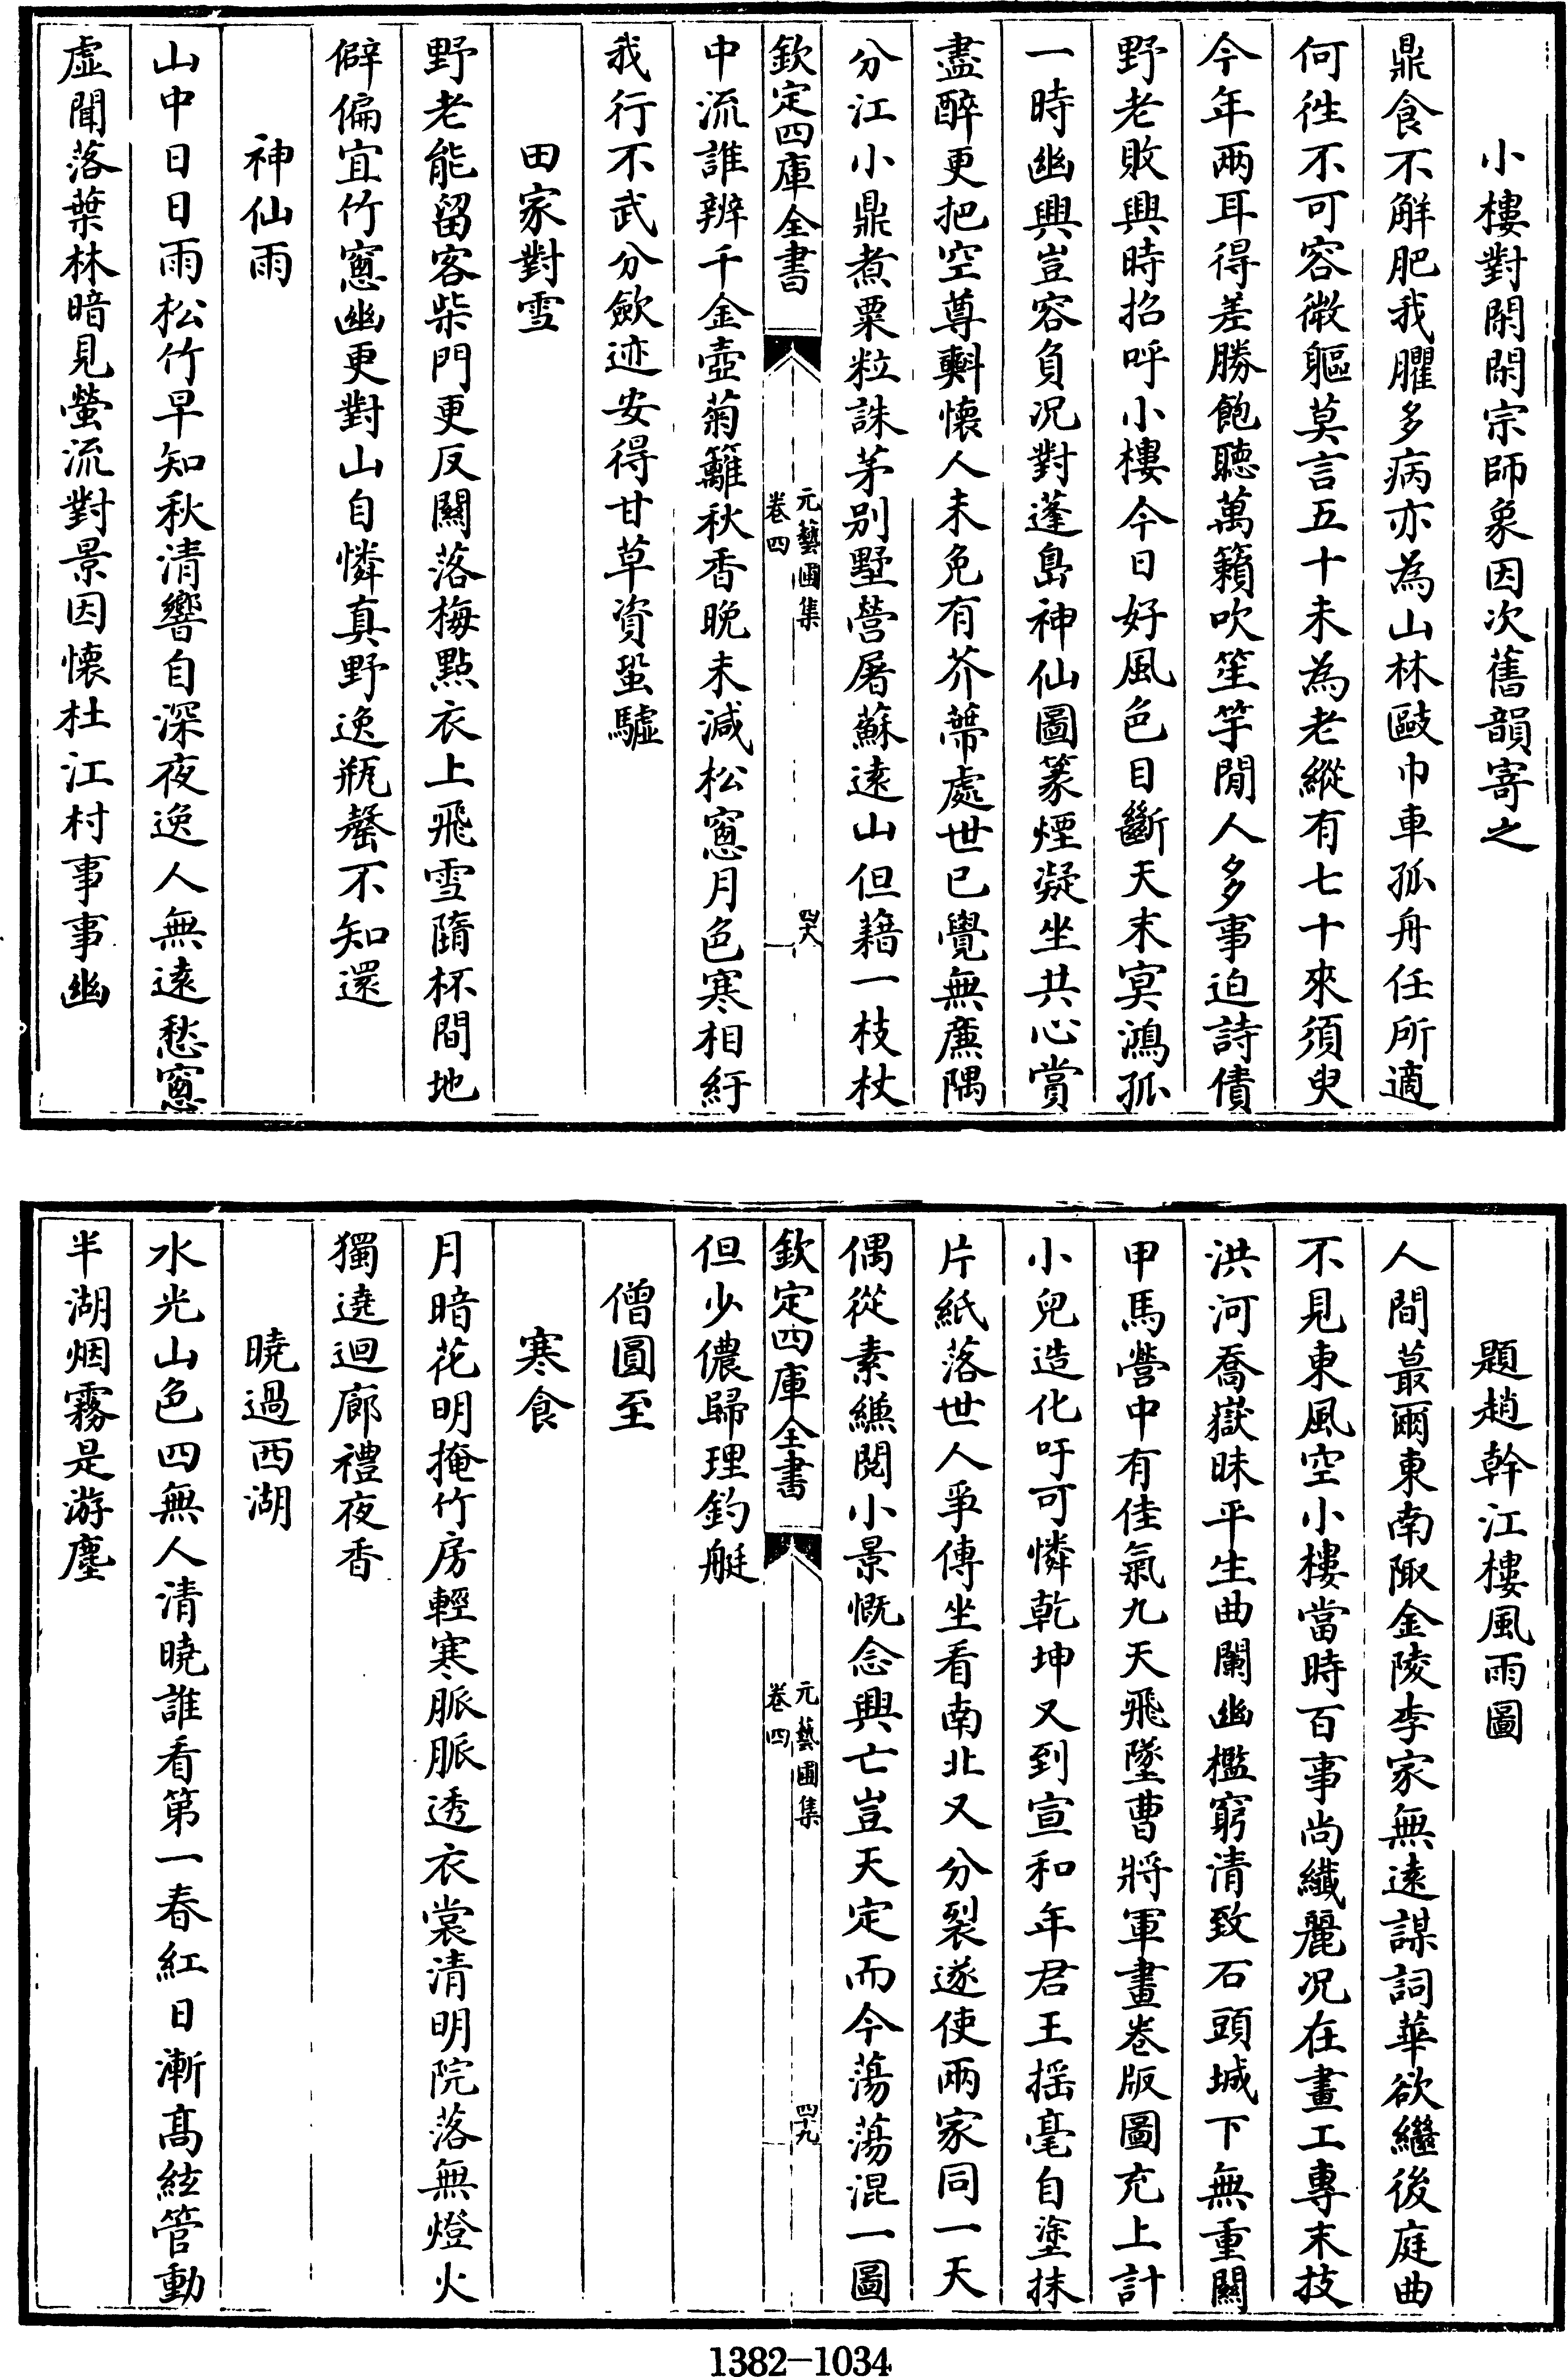 小樓對閑閑宗師象因次舊韻寄之
鼎食不解肥我臞多病亦為山林敺巾車孤舟任所適
何徃不可容微軀莫言五十未為老縱有七十來須臾
今年兩耳得差勝飽聽萬籟吹笙竽閒人多事迫詩債
野老敗興時招呼小樓今日好風色目斷天末寞鴻孤
一時幽興豈容負况對蓬島神仙圖篆煙凝坐共心賞
盡醉更把空尊㪺懷人未免有芥蔕處世已覺無廉隅
分江小鼎煮粟粒誅茅别墅營屠蘇遠山但藉一枝杖
欽定四庫全書
元藝圃集
卷四
四八
中流誰辨千金壺菊籬秋香晚未減松窻月色寒相紆
我行不武分歛迹安得甘草資蛩驉
田家對雪
野老能留客柴門更反關落梅㸃衣上飛雪隋杯間地
僻偏宜竹窻幽更對山自憐真野逸瓶罄不知還
神仙雨
山中日日雨松竹早知秋清響自深夜逸人無遠愁窻
虛聞落葉林暗見螢流對景因懷杜江村事事幽
題趙幹江樓風雨圖
人間蕞爾東南陬金陵李家無遠謀詞華欲繼後庭曲
不見東風空小樓當時百事尚纖麗况在畫工專末技
洪河喬嶽昧平生曲闌幽檻窮清致石頭城下無重關
甲馬營中有佳氣九天飛墜曹將軍畫卷版圖充上計
小兒造化吁可憐乾坤又到宣和年君王揺毫自塗抹
片紙落世人爭傳坐看南北又分裂遂使兩家同一天
偶從素縑閲小景慨念興亡豈天定而今蕩蕩混一圖
欽定四庫全書
元藝圃集
卷四
四十九
但少儂歸理釣艇
僧圓至
寒食
月暗花明掩竹房輕寒脈脈透衣裳清明院落無燈火
獨遶迴廊禮夜香
曉過西湖
水光山色四無人清曉誰看第一春紅日漸髙絃管動
半湖烟霧是游塵
1382-1034